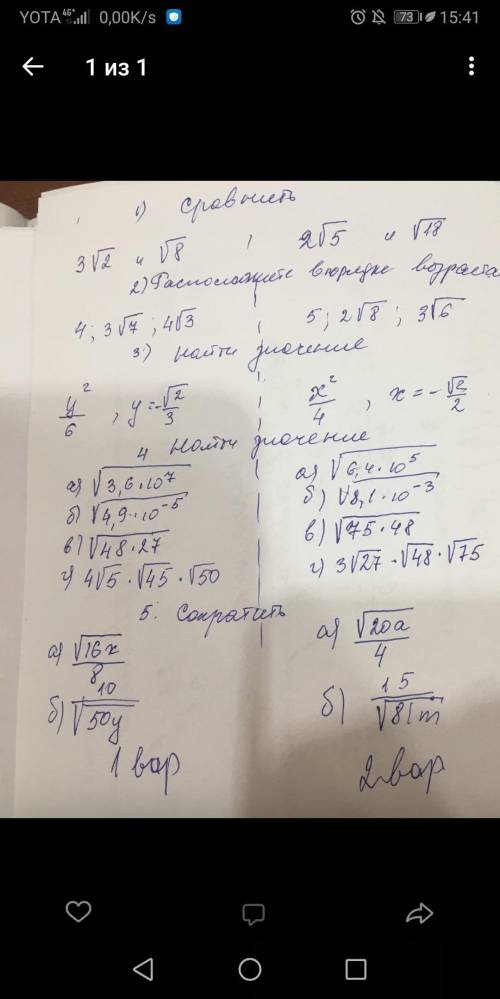 YOTA 4G+ 0,00K/s 73 15:41
1 из 1
1) Сравнить
3√2 и √8 2√5 и √18
2) Расположите в порядке возраста
4; 3√7; 4√3 5; 2√8; 3√6
3) Найти значение
y²/6, y=-√2/3 x²/4, x=-√2/2
4 Найти значение
а) √(3,6·10⁷) а) √(6,4·10⁵)
б) √(4,9·10⁻⁵) б) √(8,1·10⁻³)
в) √(48·27) в) √(75·48)
г) 4√5·√45·√50 г) 3√27·√48·√75
5. Сократить
а) √(16x)/8 а) √(20a)/4
б) 10/√(50y) б) 15/√(81m)
1 вар 2 вар